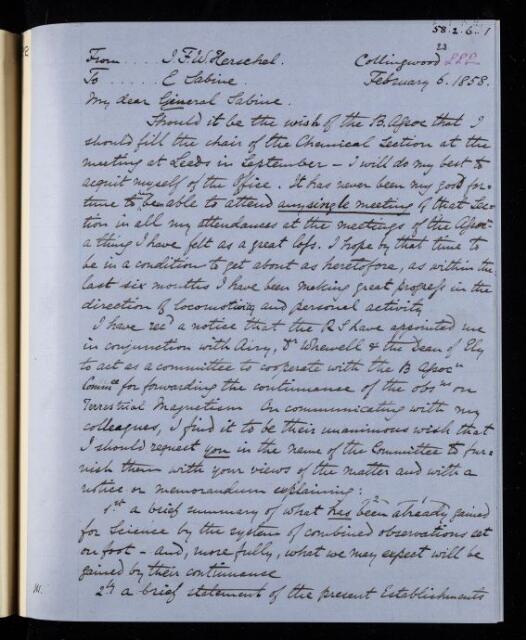 58.2.6..1
23
From .... J.F.W. Herschel. Collingwood
To ...... E Sabine. February 6. 1858.
My dear General Sabine.
Should it be the wish of the B. Assoc that I
should fill the chair of the Chemical Section at the
meeting at Leeds in September – I will do my best to
acquit myself of the Office. It has never been my good for-
tune to be able to attend any single meeting of that Sec-
tion in all my attendances at the meetings of the Assocn
a thing I have felt as a great loss. I hope by that time to
be in a condition to get about as heretofore, as within the
last six months I have been making great progress in the
direction of locomotion and personal activity
I have recd a notice that the R S have appointed me
in conjunction with Airy, Dr Whewell & the Dean of Ely
to act as a committee to cooperate with the B Assocn
Committee for forwarding the continuance of the obsns on
Terrestrial Magnetism On communicating with my
colleagues, I find it to be their unanimous wish that
I should request you in the name of the Committee to fur-
nish them with your views of the matter and with a
notice or memorandum explaining:
1st a brief summary of what has been already gained
for Science by the system of combined observations set
on foot – and, more fully, what we may expect will be
gained by their continuance
2d a brief statement of the present Establishments